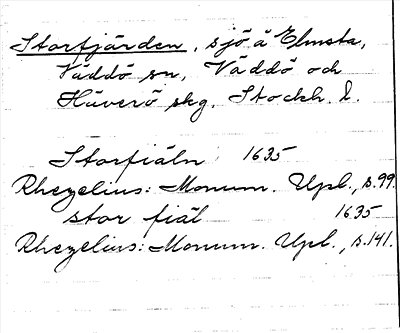 Storfjärden, sjö å Elmsta,
Väddö sn, Väddö och
Häverö skg, Stockh. l.
Storfiäln 1635
Rhezelius: Monum. Upl., s.99.
stor fiäl 1635
Rhezelius: Monum. Upl., s.141.